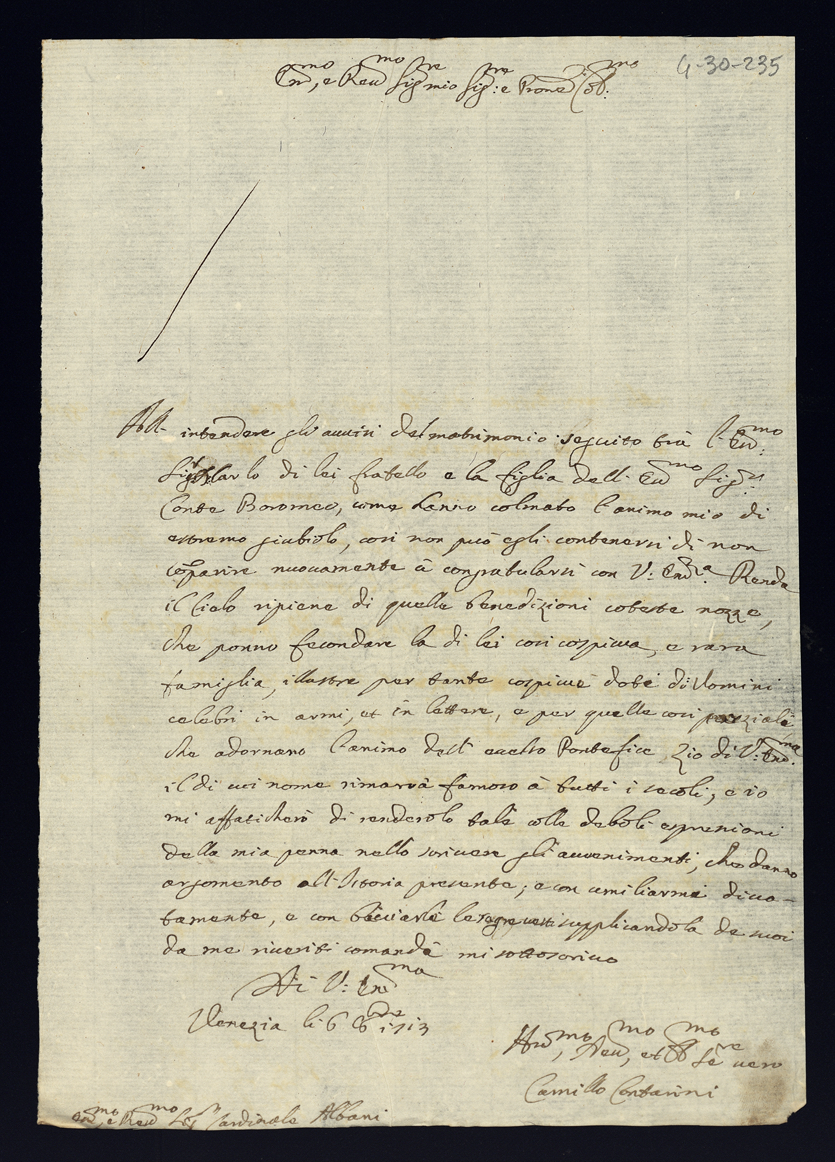 4-30-235
Em.mo, e Reu.mo Sig.re mio Sig.re: e Prone Col.mo:
All' intendere gl' auuisi del matrimonio seguito trà l'
Sig.r Carlo di lei fratello e la figlia dell' Sig.r
Conte Boromeo, come hanno colmato l' animo mio di
estremo giubiolo, così non può egli contenersi di non
comparire nuouamente à congratularsi con V: Em.za. Renda
il Cielo ripiene di quelle benedizioni coteste nozze,
che ponno fecondare la di lei così cospicua, e rara
famiglia, illustre per tante cospicue doti di Uomini
celebri in armi, et in lettere, e per quelle così
che adornano l' animo dell' eccelso Pontefice Zio di V: Em.ma.
il di cui nome rimarrà famoso à tutti i secoli, e io
mi affaticherò di renderlo tale colle deboli espressioni
della mia penna nello scriuere gli auuenimenti, che danno
argomento all' Istoria presente; e con umiliarmi diuo-
tamente, e con bacciarle le supplicandola de suoi
da me riueriti comandi mi sottoscriuo
Di V: Em.ma
Venezia li 6 8bre 1713
Hu.mo, Deu.mo, et Ob.mo Se.re uero
Camillo Contarini
Em.mo, e Reu.mo Sig.r Cardinale Albani